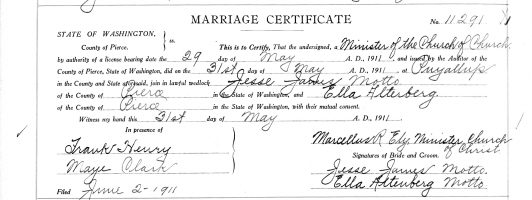 MARRIAGE CERTIFICATE
No. 11291
STATE OF WASHINGTON, } ss.
County of Pierce.
This is to Certify, That the undersigned, a Minister of the Church of Church
by authority of a license bearing date the 29 day of May A. D., 1911, and issued by the Auditor of the
County of Pierce, State of Washington, did on the 31st day of May A. D., 1911 at Puyallup
in the County and State aforesaid, join in lawful wedlock Jesse James Motto
of the County of Pierce in the State of Washington, and Ella Altenberg
of the County of Pierce in the State of Washington, with their mutual consent.
Witness my hand this 31st day of May A. D. 1911
In presence of
Frank Henry
Maye Clark
Marcellus R Ely Minister Church of Christ
Signatures of Bride and Groom.
Jesse James Motto.
Ella Altenberg Motto
Filed June 2-1911